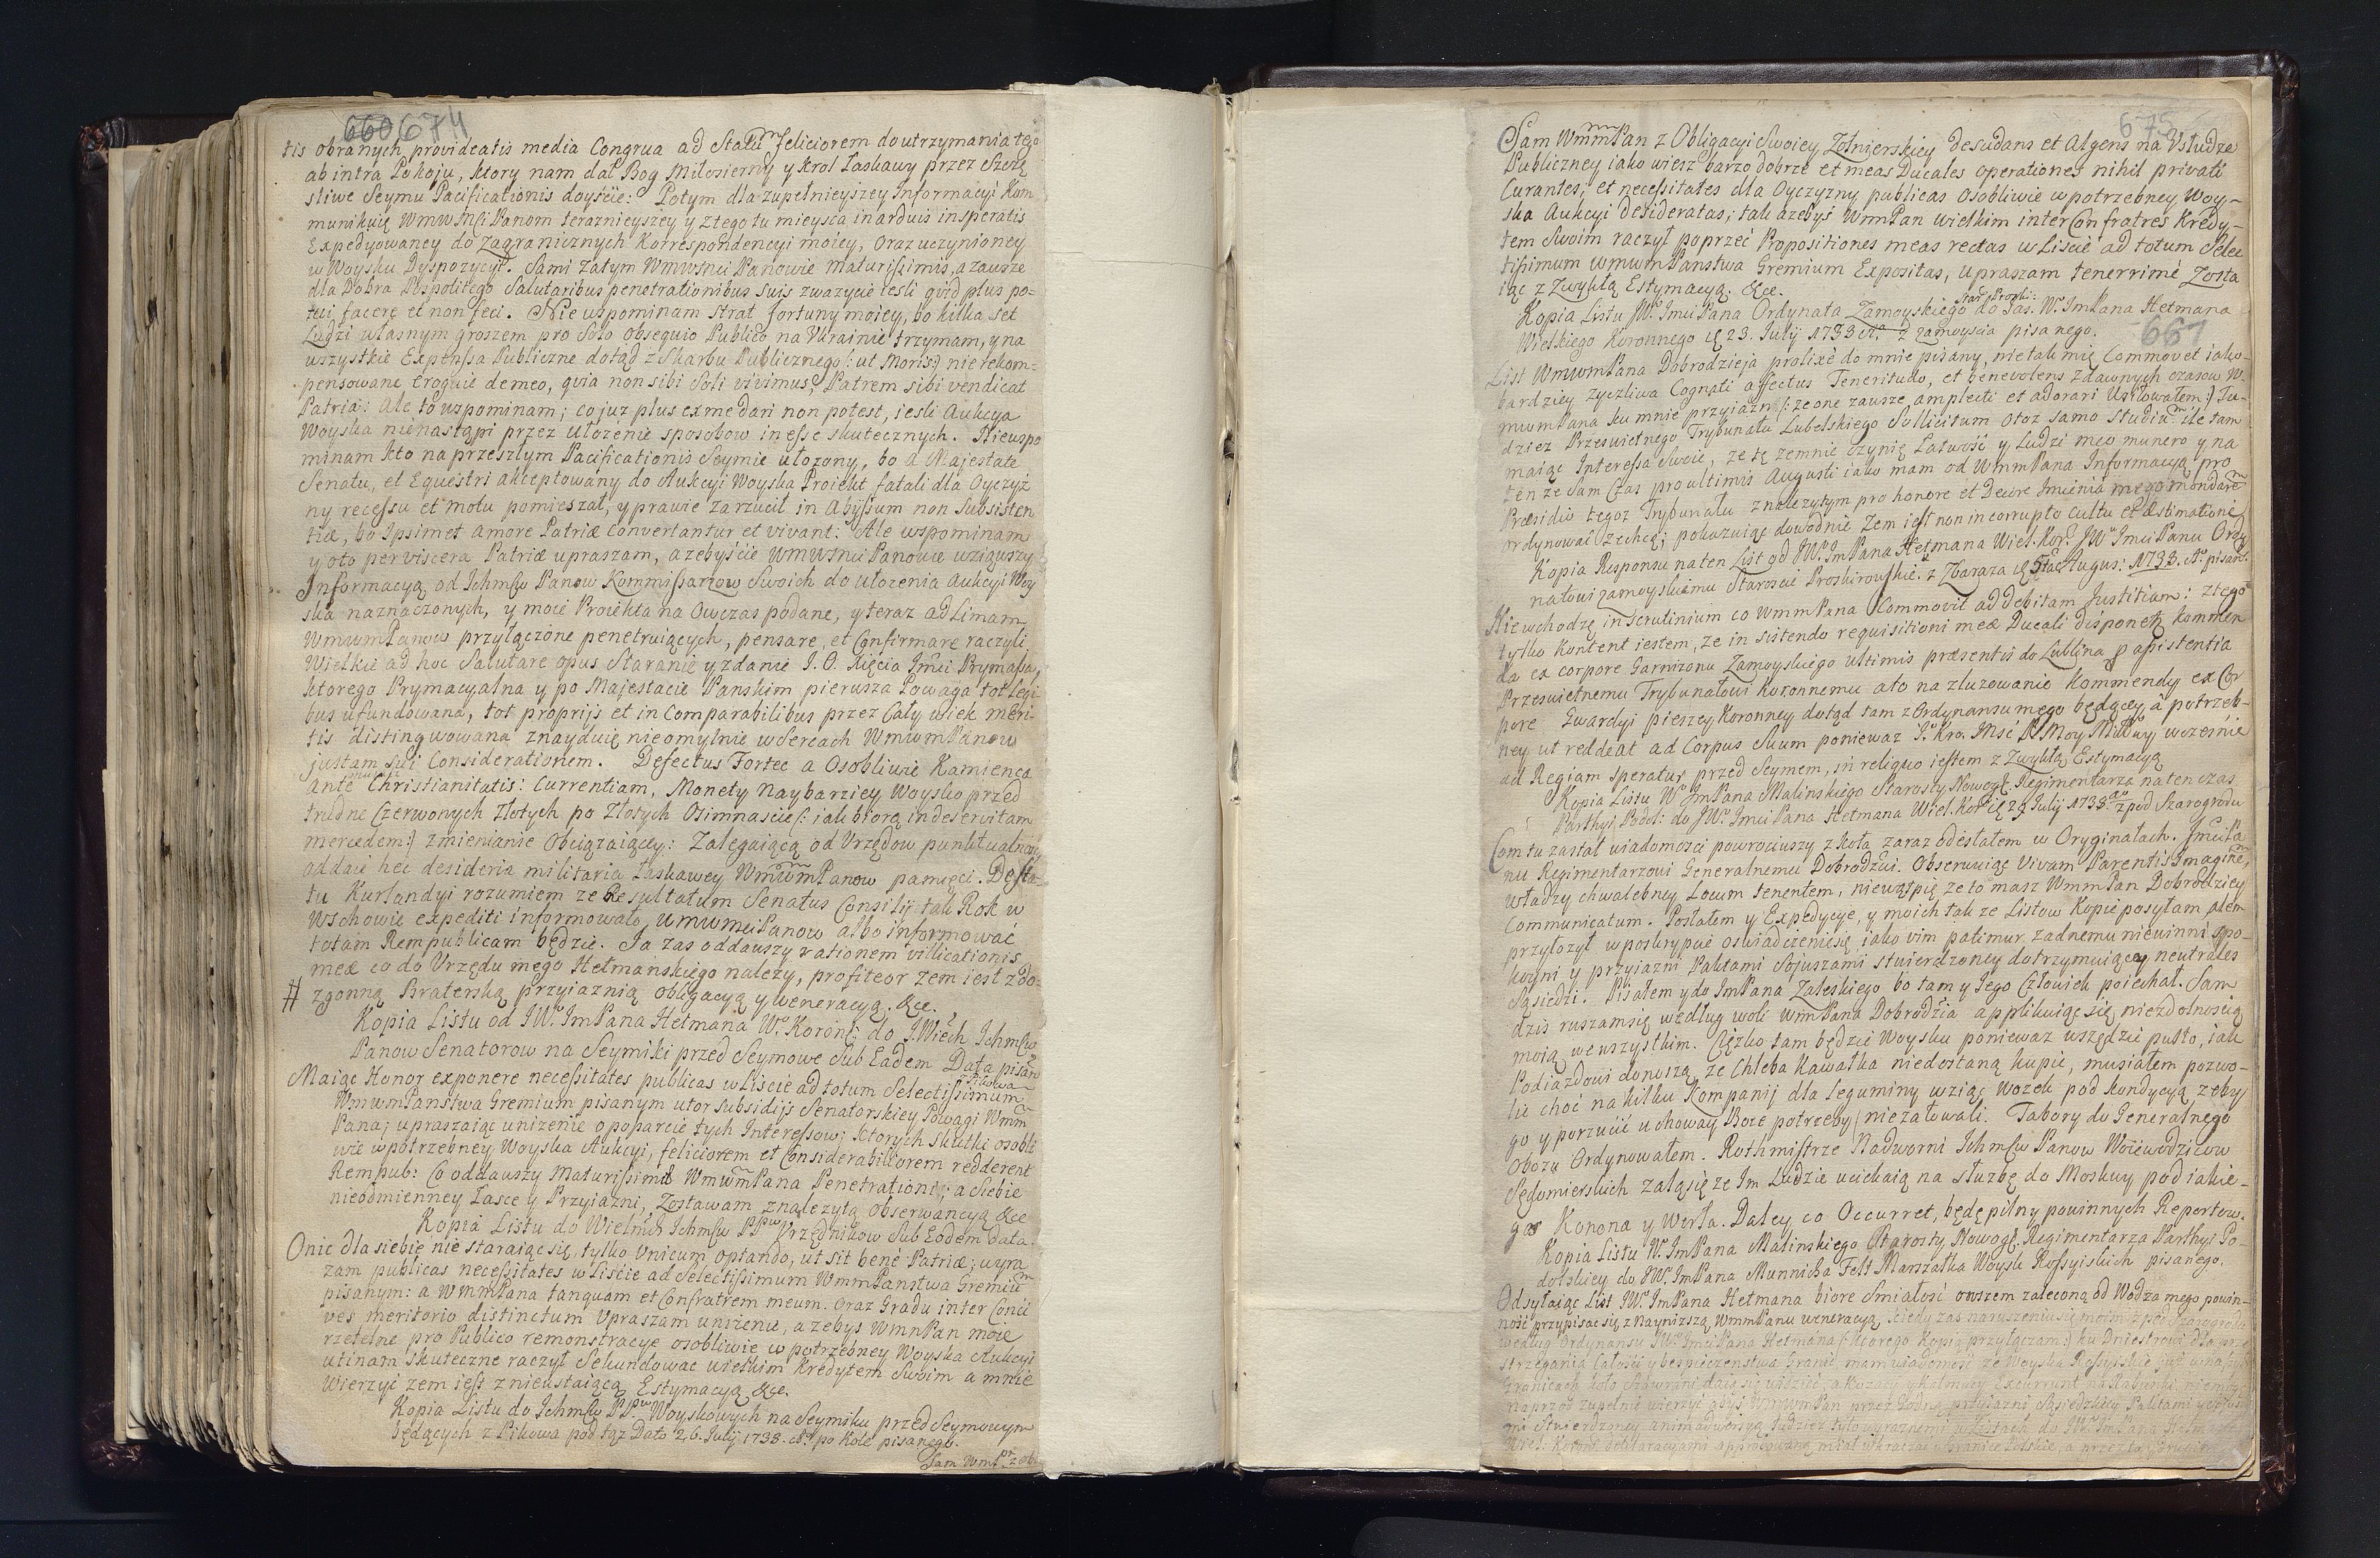 660 674
tis obranych provideatis media Congrua ad Statum feliciorem do utrzymania tego
ab intra Pokoju, ktory nam dał Bog Miłosierny y Krol Łaskawy przez Szczę
sliwe Seymu Pacificationis doyście: Potym dla zupełnieyszey Informacyi Kom
munikuię WmwMci Panom teraznieyszey y z tego tu mieysca in arduis insperatis
Expedyowaney do Zagranicznych Korrespondencyi moiey, oraz uczynioney
w Woysku Dyspozycyi. Sami zatym Wmwmci Panowie Maturissimis, a zawsze
dla Dobra Pospolitego Salutaribus penetrationibus suis zwazycie iesli quid plus po=
tui facere et non feci. Nie wspominam Strat fortuny moiey, bo kilka set
Ludzi własnym groszem pro Solo obsequio Publico na Ukrainie trzymam, y na
wszystkie Expensa Publiczne dotąd z Skarbu Publicznego (: ut Moris:) nie rekom=
pensowane eroguię de meo, quia non sibi Soli vivimus, Patrem sibi vendicat
Patria: Ale to wspominam; co juz plus ex me dari non potest, iesli Aukcya
Woyska nienastąpi przez ułożenie sposobow in esse skutecznych. Niewspo
minam kto na przeszłym Pacificationis Seymie ułozony, bo a Majestate
Senatu, et Equestri akceptowany do Aukcyi Woyska Proiekt fatali dla Oyczyz
ny recessu et motu pomieszał, y prawie zarzucił in Abyssum non Subsisten
tiæ, bo Ipsimet amore Patriæ convertantur et vivant: Ale wspominam
y oto per viscera Patriæ upraszam, azebyście Wmwmci Panowie wziąwszy
Informacyą od Ichmsw Panow Kommissarzow Swoich do ułozenia Aukcyi Woy
ska naznaczonych, y moie Proiekta na Owczas podane, y teraz ad Limam
WmwmPanow przyłączone penetruiących, pensare, et Confirmare raczyli
Wielkie ad hoc Salutare opus Staranie y zdanie J. O. Xięcia Jmci Prymasa,
ktorego Prymacyalna y po Majestacie Panskim pierwsza Powaga tot Legi
bus ufundowana, tot proprijs et incomparabilibus przez Cały wiek meri=
tis distingwowana znayduię nieomylnie w Sercach WmwmPanow
justam sui Considerationem. Defectus Fortec a Osobliwie Kamienca
ante Christianitatis: Currentiam, Monety Naybarziey Woysko przed
trudne Czerwonych złotych po złotych Osimnascie (: iak biorą in deservitam
mercedem:) zmienianie Obciązaiącey: Zalegaiącą od Urzędow punktualno
oddaię hec desideria militaria Łaskawey WmwmPanow pamięci. De Sta=
tu Kurlandyi rozumiem ze Resultatum Senatus Consilij tak Rok w
Wschowie expediti informowało, WmwmciPanow albo informować
totam Rempublicam będzie. Ja zas oddawszy rationem villicationis
meæ co do Urzędu mego Hetmanskiego nalezy, profiteor zem iest z do=
# zgonną Braterską przyiaznią obligacyą y weneracyą. &ce.
Kopia Listu od JW. ImPana Hetmana W. Koronń: do J.Wiech Ichmsw
Panow Senatorow na Seymiki przed Seymowe Sub Eadem Data pisan
z Pikowa
Maiąc Honor exponere necessitates publicas w Liscie ad totum Selectissimum
WmwmPanstwa Gremium pisanym utor subsidijs Senatorskiey Powagi Wmm
Pana; upraszaiąc unizenie o poparcie tych Interessow; ktorych skutki osobli
wie w potrzebney Woyska Aukcyi, feliciorem et Considerabiliorem redderent
Rempub: Co oddawszy Maturissimæ WmwmPana Penetrationi; a Siebie
nieodmienney Łasce y Przyiazni, Zostawam znalezytą obserwancyą &ce
Kopia Listu do Wielmch Ichmsw PPw Urzędnikow Sub Eodem data.
O nic dla siebie nie staraiąc się, tylko Unicum optando, ut sit bene Patriæ; wyra
zam publicas necessitates w Liscie ad Selectissimum WmmPanstwa Gremium
pisanym: a WmmPana tanquam et Confratrem meum. oraz Gradu inter Conci
ves meritorio distinctum Upraszam unizenie, a zebyś WmmPan moie
rzetelne pro Publico remonstracye osobliwie w potrzebney Woyska Aukcyi
utinam skuteczne raczył Sekundować wielkim kredytem Swoim a mnie
Wierzyć zem iest z nieustaiącą Estymacyą &ce.
Kopia Listu do Ichmsw PPw Woyskowych na Seymiku przed Seymowym
będących z Pikowa pod tąz Datą 26. Julij 1738. Ao po Kole pisanego.
Sam WmP. z obl
675
Sam WmmPan z Obligacyi Swoiey Zołnierskiey desudans et Algens na Usłudze
Publiczney iako wiesz barzo dobrze et meas Ducales operationes nihil privati
Curantes, et necessitates dla Oyczyzny publicas Osobliwie w potrzebney Woy=
ska Aukcyi desideratas; tak azebyś WmmPan wielkim inter Confratres Kredy=
tem Swoim raczył poprzeć Propositiones meas rectas w Liscie ad totum Selec
tissimum WmwmPanstwa Gremium Expositas, upraszam tenerrime Zosta
iąc z Zwykłą Estymacyą. &ce.
Kopia Listu JW. Jmci Pana Ordynata Zamoyskiego Star: Proski: do Jas. W. ImPana Hetmana
Wielkiego Koronnego d. 23. Julij 1738. Ao z Zamoyscia pisanego.
667
List WmwmPana Dobrodzieja prolixe do mnie pisany, nie tak mię Commovet iako
bardziey zyczliwa Cognati affectus Teneritudo, et benevolens z dawnych czasow W.
mwmPana ku mnie przyiazn (: ze one zawsze amplecti et adorari Usiłowałem:) Tu=
dziez Przeswietnego Trybunału Lubelskiego Sollicitum Otoz samo Studium ile tam
maiąc Interessa Swoie, ze tę zemnie czynię Łatwość y Ludzi meo munero y na
ten ze Sam Czas pro ultimis Augusti iako mam od WmmPana Informacyą pro
Præsidio tegoz Trybunału znalezytym pro honore et Decore Imienia mego mondare
ordynować zechcę; pokazuiąc dowodnie zem iest non in corrupto cultu et æstimatione
Kopia Responsu na ten List od JW. ImPana Hetmana Wiel. Kor. JW Jmci Panu Ordy
natowi Zamoyskiemu Staroscie Proskirowskie. z Zbaraza d. 5ta Augus: 1738. Ao pisan.
Niewchodzę in Scrutinium co WmmPana Commovit ad debitam Justitiam: z tego
tylko Kontent iestem, ze in sistendo requisitioni meæ Ducali disponet kommen
da ex corpore Garnizonu Zamoyskiego ultimis præsentis do Lublina p assistentia
Przeswietnemu Trybunałowi Koronnemu a to na zluzowanie Kommendy ex Cor
pore Gwardyi pieszey Koronney dotąd tam z Ordynansu mego będącey a potrzeb=
ney ut reddeat ad Corpus Suum poniewaz J. Kro. Msć P. Moy Miłwy wczesnie
ad Regiam speratur przed Seymem, in reliquo iestem z Zwykłą Estymacyą
Kopia Listu W ImPana Malinskiego Starosty Nowogr. Regimentarza na ten czas
Parthyi Podol: do JW. Jmci Pana Hetmana Wiel. Kor. d. 29 Julij 1738. Ao z pod Szarogrodu
Com tu zastał wiadomosci powrociwszy z Koła zaraz odesłałem w Oryginałach. JmciPa
nu Regimentarzowi Generalnemu Dobrodźiwi. Obserwuiąc Vivam Parentis Imaginem,
władzy chwalebney Locum tenentem, niewątpię ze to masz WmmPan Dobrodziey
Communicatum. Posłałem y Expedycye, y moich tak ze Listow Kopie posyłam, alem
przyłozył w poskrypcie oswiadczeniesię, iako vim patimur zadnemu niewinni spo=
koyni y przyiazni Paktami Sojuszami stwierdzoney dotrzymuiący neutrales
Sąsiedzi. Pisałem y do ImPana Zaleskiego bo tam y Jego Człowiek poiechał. Sam
dzis ruszamsię według woli WmmPana Dobrodźia applikuiąc się niezdolnoscią
moią we wszystkim. Cięzko tam będzie Woysku poniewaz wszędzie pusto, iak
Podiazdowi donoszą, ze Chleba Kawałka niedostaną kupić, musiałem pozwo=
lić choć na kilku Kompanij dla leguminy wziąć wozek pod kondycyą zeby
go y porzucić uchoway Boze potrzeby) nie załowali. Tabory do Generalnego
Obozu Ordynowałem. Rothmistrze Nadworni Ichmsw Panow Woiewodzicow
Sędomierskich załąsię ze Im Ludzie uciekaią na służbę do Moskwy pod iakie=
gos Konona y Werła. Daley co Occurret, będę pilny powinnych Reportow.
Kopia Listu W. ImPana Malinskiego Starosty Nowogr. Regimentarza Parthyi Po=
dolskiey do JW. ImPana Munnicha Felt Marszałka Woysk Rossyiskich pisanego.
Odsyłaiąc List JW. ImPana Hetmana biore Smiałość owszem zaleconą od Wodza mego powin=
ność przypisać się z Nayniszszą WmmPanu weneracyą. kiedy zas na ruszeniu się moim z pod Szarogrodu
według Ordynansu JW. Jmci Pana Hetmana (: ktorego Kopią przyłączam:) ku Dniestrowi dla prze
strzegania Całości y bespieczenstwa Granic, mam wiadomosć ze Woyska Rossyiskie juz w naszych
Granicach koło
naprzod zupełnie wierzyć abyś WmmPan przez